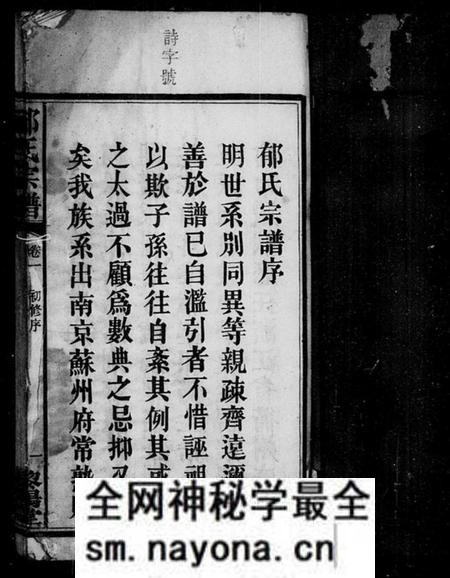 詩字號
郁氏宗譜序
明世系別同異等親疎齊遠邇
善於譜已自濫引者不惜誣祖
以欺子孫往往自紊其例其或
之太過不顧爲數典之忌抑
矣我族系出南京蘇州府常
郁氏宗譜
卷一
初修序
一
全网神秘学最全
sm.nayona.cn